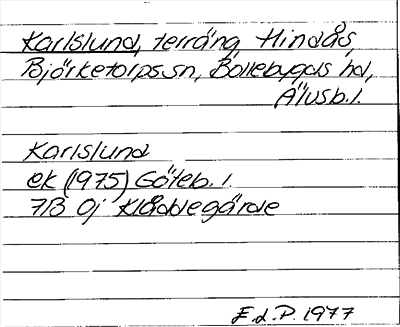 Karlslund, terräng, Hindås,
Björketorps sn, Bollebygds hd,
Älvsb. l.
Karlslund
ek (1975) Göteb. l.
7B 0j Klåddegärde
E. L. P. 1977